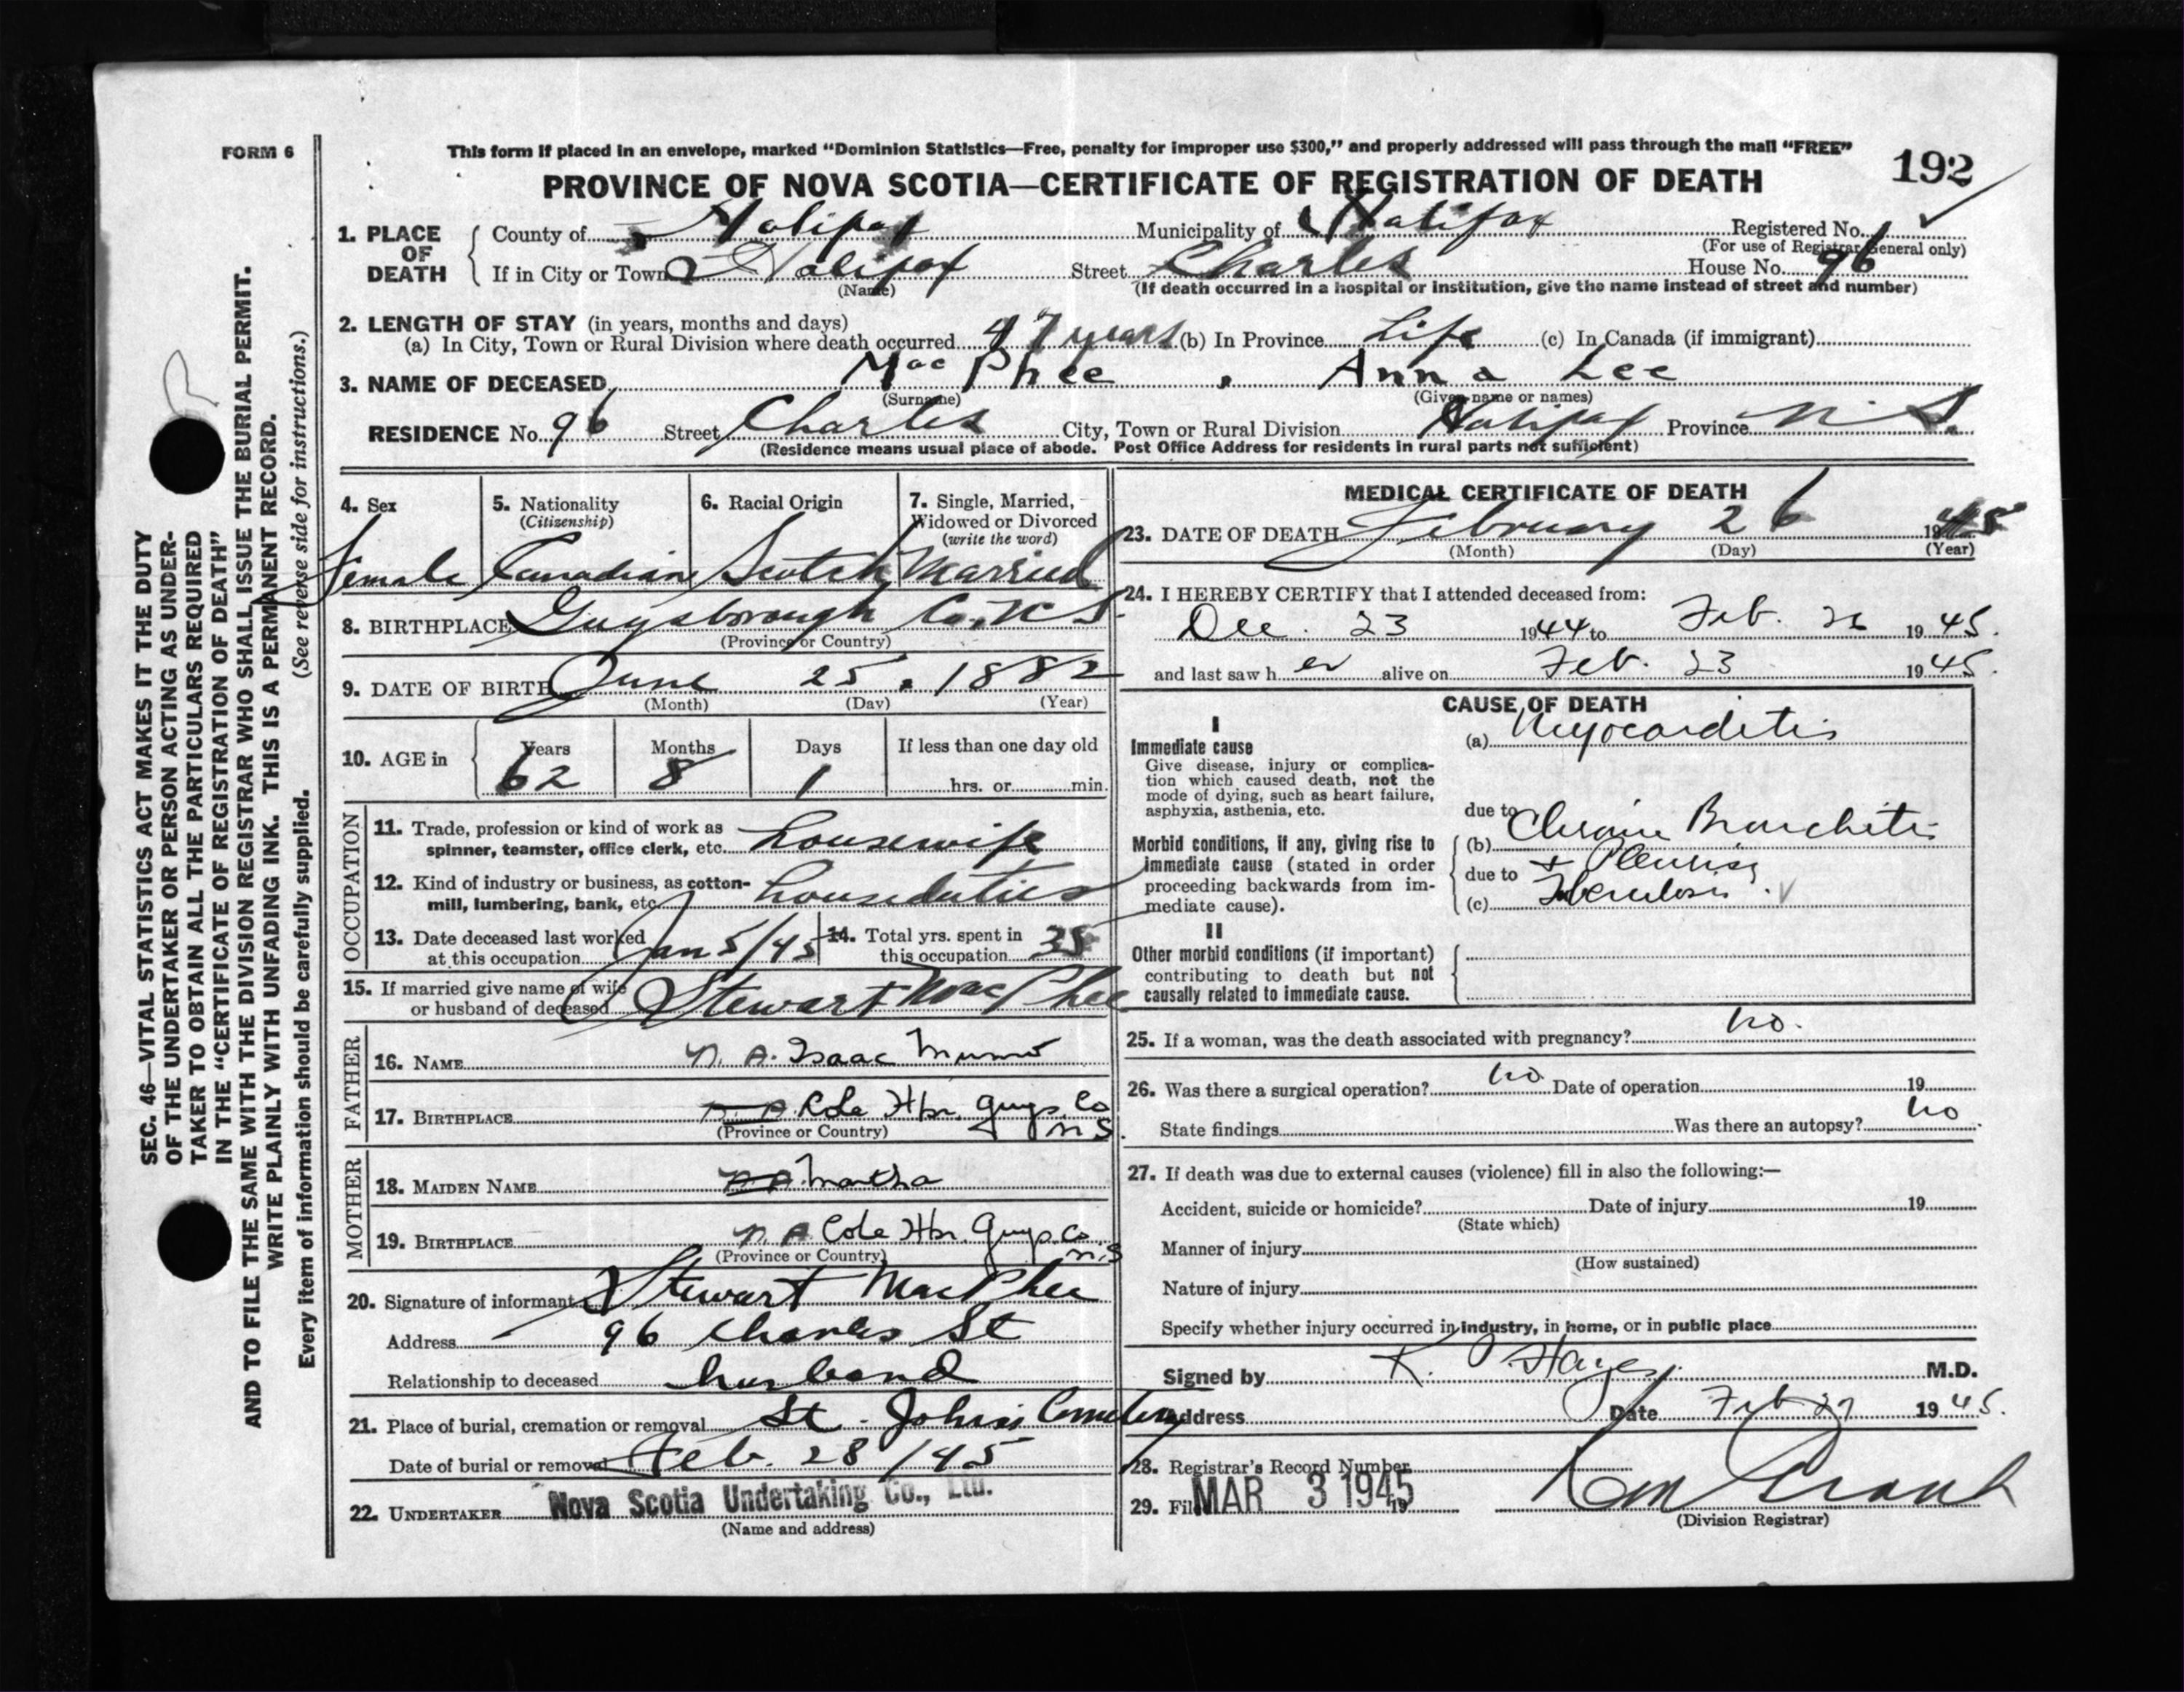 FORM 6
This form if placed in an envelope, marked "Dominion Statistics—Free, penalty for improper use $300," and properly addressed will pass through the mail "FREE"
192
PROVINCE OF NOVA SCOTIA—CERTIFICATE OF REGISTRATION OF DEATH
1. PLACE OF DEATH
County of Halifax Municipality of Halifax Registered No.
(For use of Registrar General only)
If in City or Town Halifax Street Charles House No. 96
(Name) (If death occurred in a hospital or institution, give the name instead of street and number)
2. LENGTH OF STAY (in years, months and days)
(a) In City, Town or Rural Division where death occurred 47 years (b) In Province Life (c) In Canada (if immigrant)
3. NAME OF DECEASED MacPhee , Anna Lee
(Surname) (Given name or names)
RESIDENCE No. 96 Street Charles City, Town or Rural Division Halifax Province N.S.
(Residence means usual place of abode. Post Office Address for residents in rural parts not sufficient)
4. Sex
Female
5. Nationality
(Citizenship)
Canadian
6. Racial Origin
Scotch
7. Single, Married,
Widowed or Divorced
(write the word)
Married
8. BIRTHPLACE Guysborough Co. N S
(Province or Country)
9. DATE OF BIRTH June 25, 1882
(Month) (Day) (Year)
10. AGE in
Years Months Days If less than one day old
62 8 1 hrs. or min.
OCCUPATION
11. Trade, profession or kind of work as
spinner, teamster, office clerk, etc. housewife
12. Kind of industry or business, as cotton-
mill, lumbering, bank, etc. houseduties
13. Date deceased last worked
at this occupation Jan 5/45
14. Total yrs. spent in
this occupation 35
15. If married give name of wife
or husband of deceased Stewart MacPhee
FATHER
16. NAME N. A. Isaac Munro
17. BIRTHPLACE N. A. Cole Hbr. Guys. Co
(Province or Country) N S.
MOTHER
18. MAIDEN NAME N A. Martha
19. BIRTHPLACE N. A Cole Hbr. Guys. Co.
(Province or Country) N.S
20. Signature of informant Stewart MacPhee
Address 96 Charles St
Relationship to deceased husband
21. Place of burial, cremation or removal St. John's Cemetery
Date of burial or removal Feb. 28/45
22. UNDERTAKER Nova Scotia Undertaking Co., Ltd.
(Name and address)
MEDICAL CERTIFICATE OF DEATH
23. DATE OF DEATH February 26 1945
(Month) (Day) (Year)
24. I HEREBY CERTIFY that I attended deceased from:
Dec. 23 1944 to Feb. 26 1945.
and last saw her alive on Feb. 23 1945.
CAUSE OF DEATH
I
Immediate cause
Give disease, injury or complica-
tion which caused death, not the
mode of dying, such as heart failure,
asphyxia, asthenia, etc.
(a) Myocarditis
due to
Morbid conditions, if any, giving rise to
immediate cause (stated in order
proceeding backwards from im-
mediate cause).
(b) Chronic Bronchitis
due to + Pleurisy
(c) Tuberculosis.
II
Other morbid conditions (if important)
contributing to death but not
causally related to immediate cause.
25. If a woman, was the death associated with pregnancy? no.
26. Was there a surgical operation? no Date of operation 19
State findings Was there an autopsy? no
27. If death was due to external causes (violence) fill in also the following:—
Accident, suicide or homicide? Date of injury 19
(State which)
Manner of injury
(How sustained)
Nature of injury
Specify whether injury occurred in industry, in home, or in public place
Signed by K. P Hayes M.D.
Address Date Feb 27 1945.
28. Registrar's Record Number
29. Filed MAR 3 1945 19
(Division Registrar)
SEC. 46—VITAL STATISTICS ACT MAKES IT THE DUTY
OF THE UNDERTAKER OR PERSON ACTING AS UNDER-
TAKER TO OBTAIN ALL THE PARTICULARS REQUIRED
IN THE "CERTIFICATE OF REGISTRATION OF DEATH"
AND TO FILE THE SAME WITH THE DIVISION REGISTRAR WHO SHALL ISSUE THE BURIAL PERMIT.
WRITE PLAINLY WITH UNFADING INK. THIS IS A PERMANENT RECORD.
Every item of information should be carefully supplied. (See reverse side for instructions.)